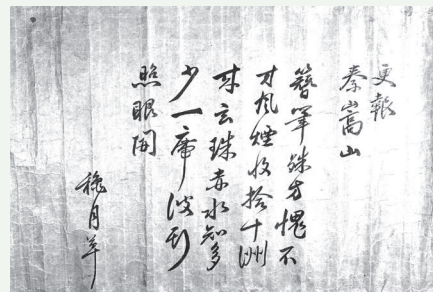 更報
秦嵩山
簪筆殊方愧不
才風煙收拾十洲
來玄珠赤水知多
少一席談到
照眼開
龝月草